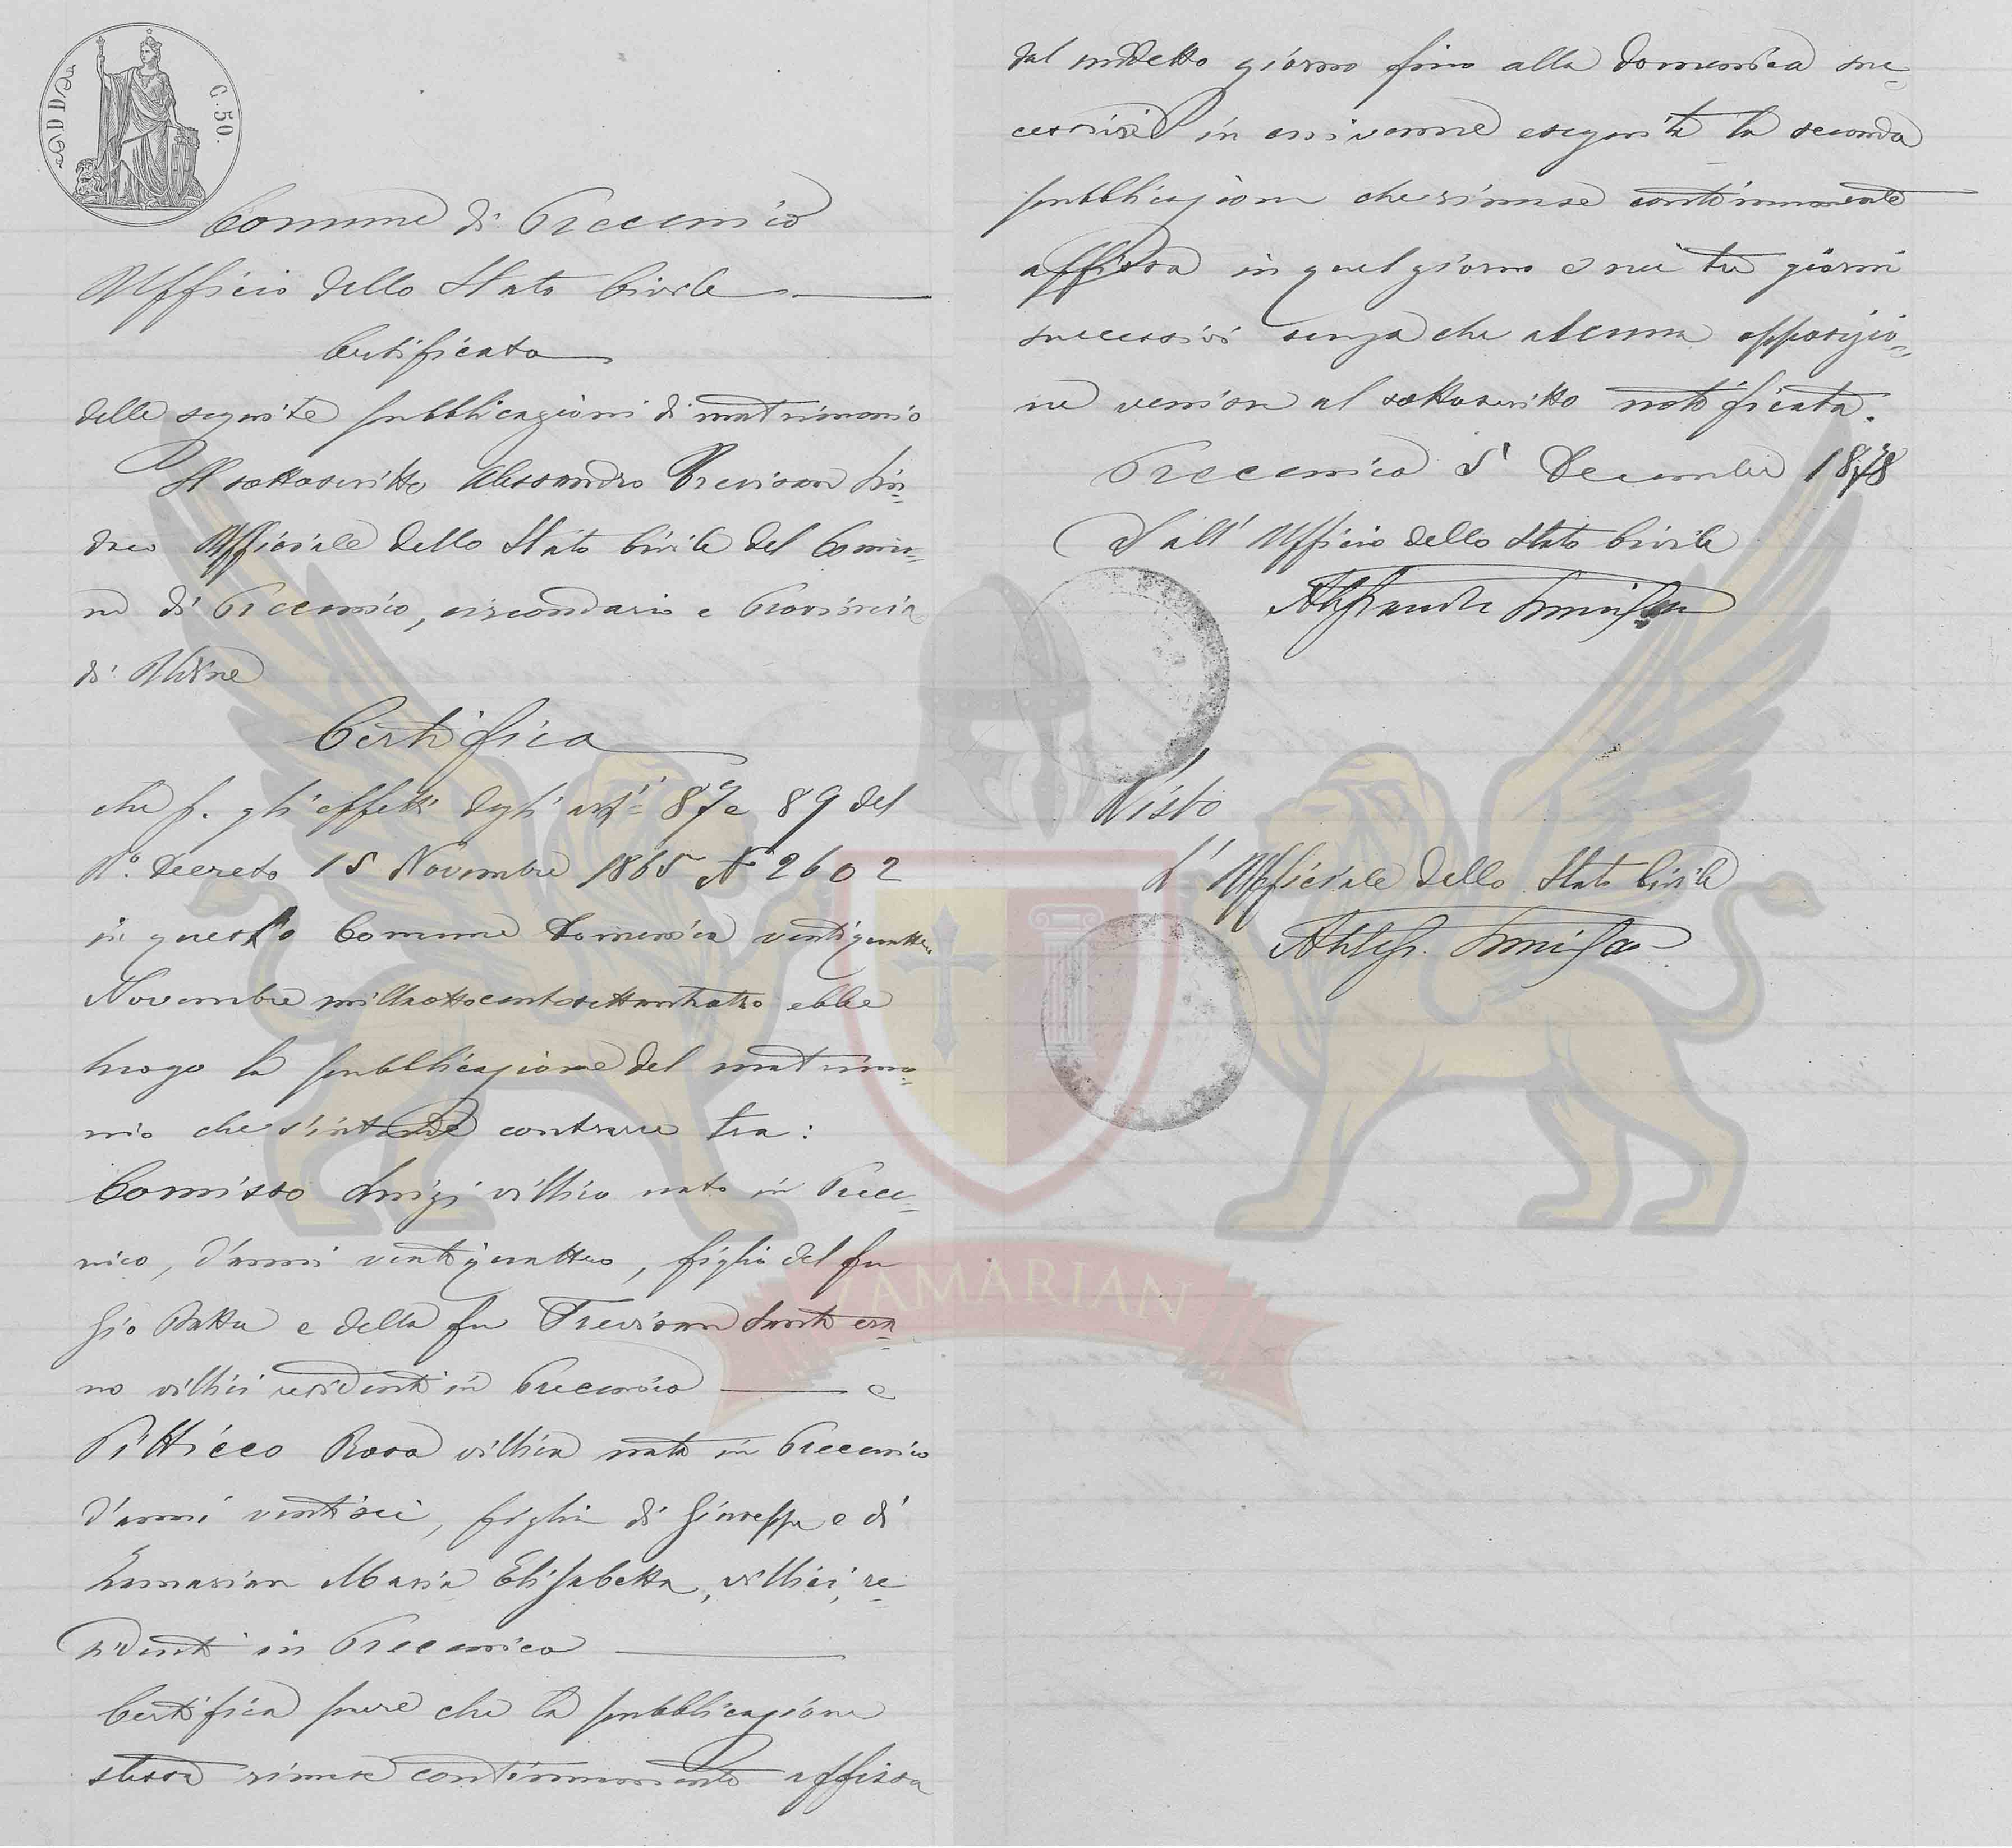 C. 50.
Comune di Precenico
Ufficio dello Stato Civile
Certificato
delle seguite pubblicazioni di matrimonio
Il sottoscritto Alessandro Trevisan Sin=
daco Ufficiale dello Stato Civile del Comu=
ne di Precenico, circondario e Provincia
di Udine
Certifica
che p. gli effetti degli art.i 87 e 89 del
R.º Decreto 15 Novembre 1865 Nº 2602
in questo Comune Domenica ventiquattro
Novembre milleottocentosettantaotto ebbe
luogo la pubblicazione del matrimo=
nio che s'intende contrarre tra:
Comisso Luigi villico nato in Prece=
nico, d'anni ventiquattro, figlio del fu
Gio Batta e della fu Trevisan Santa era=
no villici residenti in Precenico e
Pitticco Rosa villica nata in Precenico
d'anni ventisei, figlia di Giuseppe e di
Zamarian Maria Elisabetta, villici, re=
sidenti in Precenico
Certifica pure che la pubblicazione
stessa rimase continuamente affissa
dal suddetto giorno fino alla domenica suc=
cessiva in cui venne eseguita la seconda
pubblicazione che rimase continuamente
affissa in quel giorno e nei tre giorni
successivi senza che alcuna opposizio=
ne venisse al sottoscritto notificata.
Precenico 5 Decembre 1878
Dall' Ufficio dello Stato Civile
Alessandro Trevisan
Visto
L' Ufficiale dello Stato Civile
Aless. Trevisan
ZAMARIAN